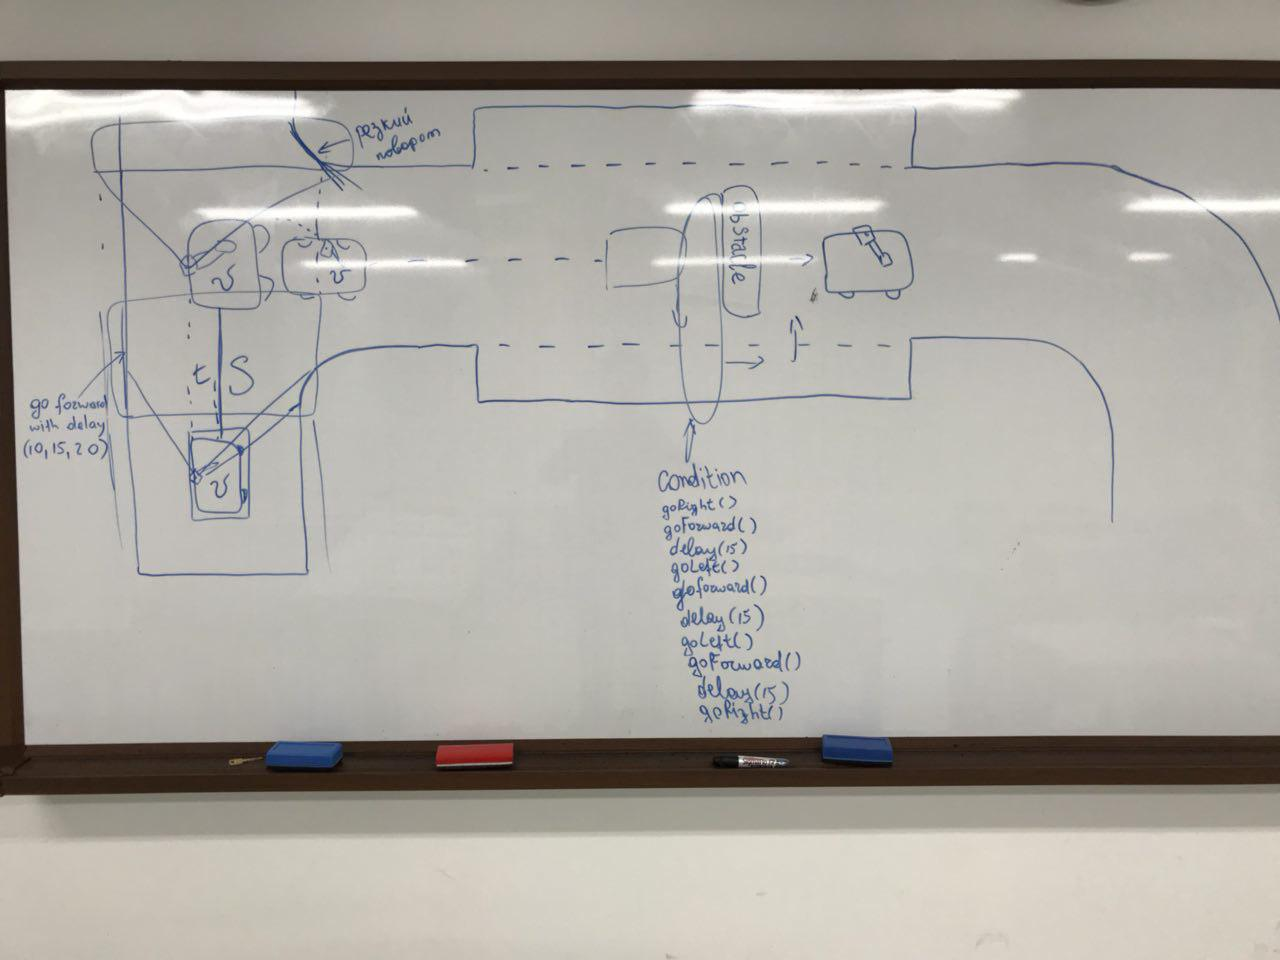 резкий
поворот
obstacle
v
v
t
S
go forward
with delay
(10, 15, 20)
v
condition
goRight()
goForward()
delay(15)
goLeft()
goforward()
delay(15)
goLeft()
goForward()
delay(15)
goRight()